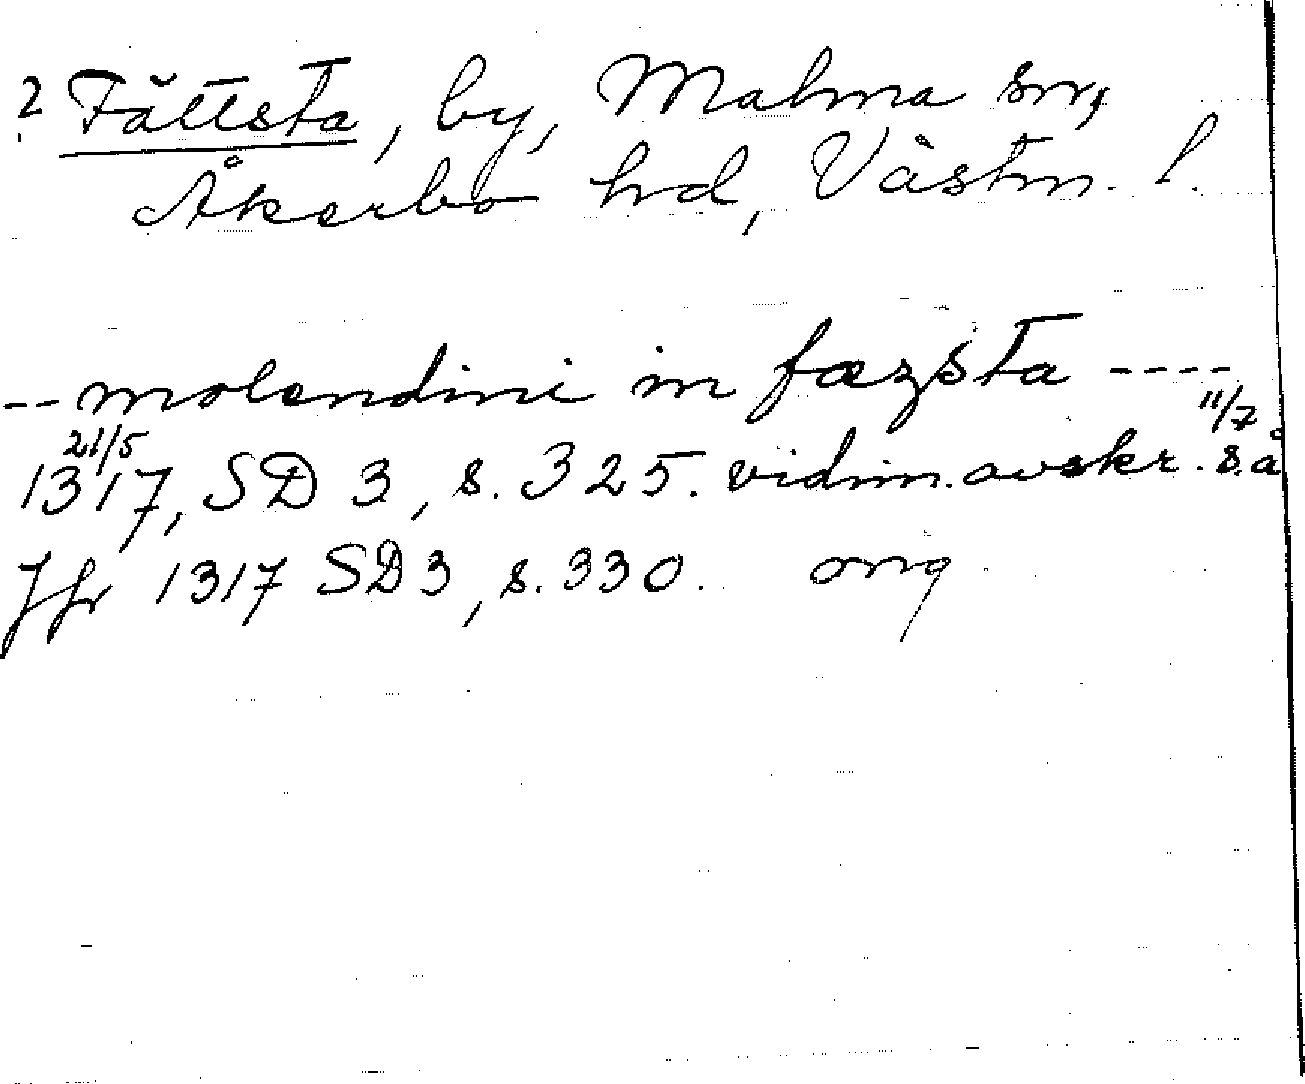 ? Fättsta, by, Malma sn,
Åkerbo hd, Västm. l.
-- molendini in fæzsta ----
21/5 11/7
1317, SD 3, s. 325. vidim. avskr. s.å
Jfr 1317 SD 3, s. 330. orig